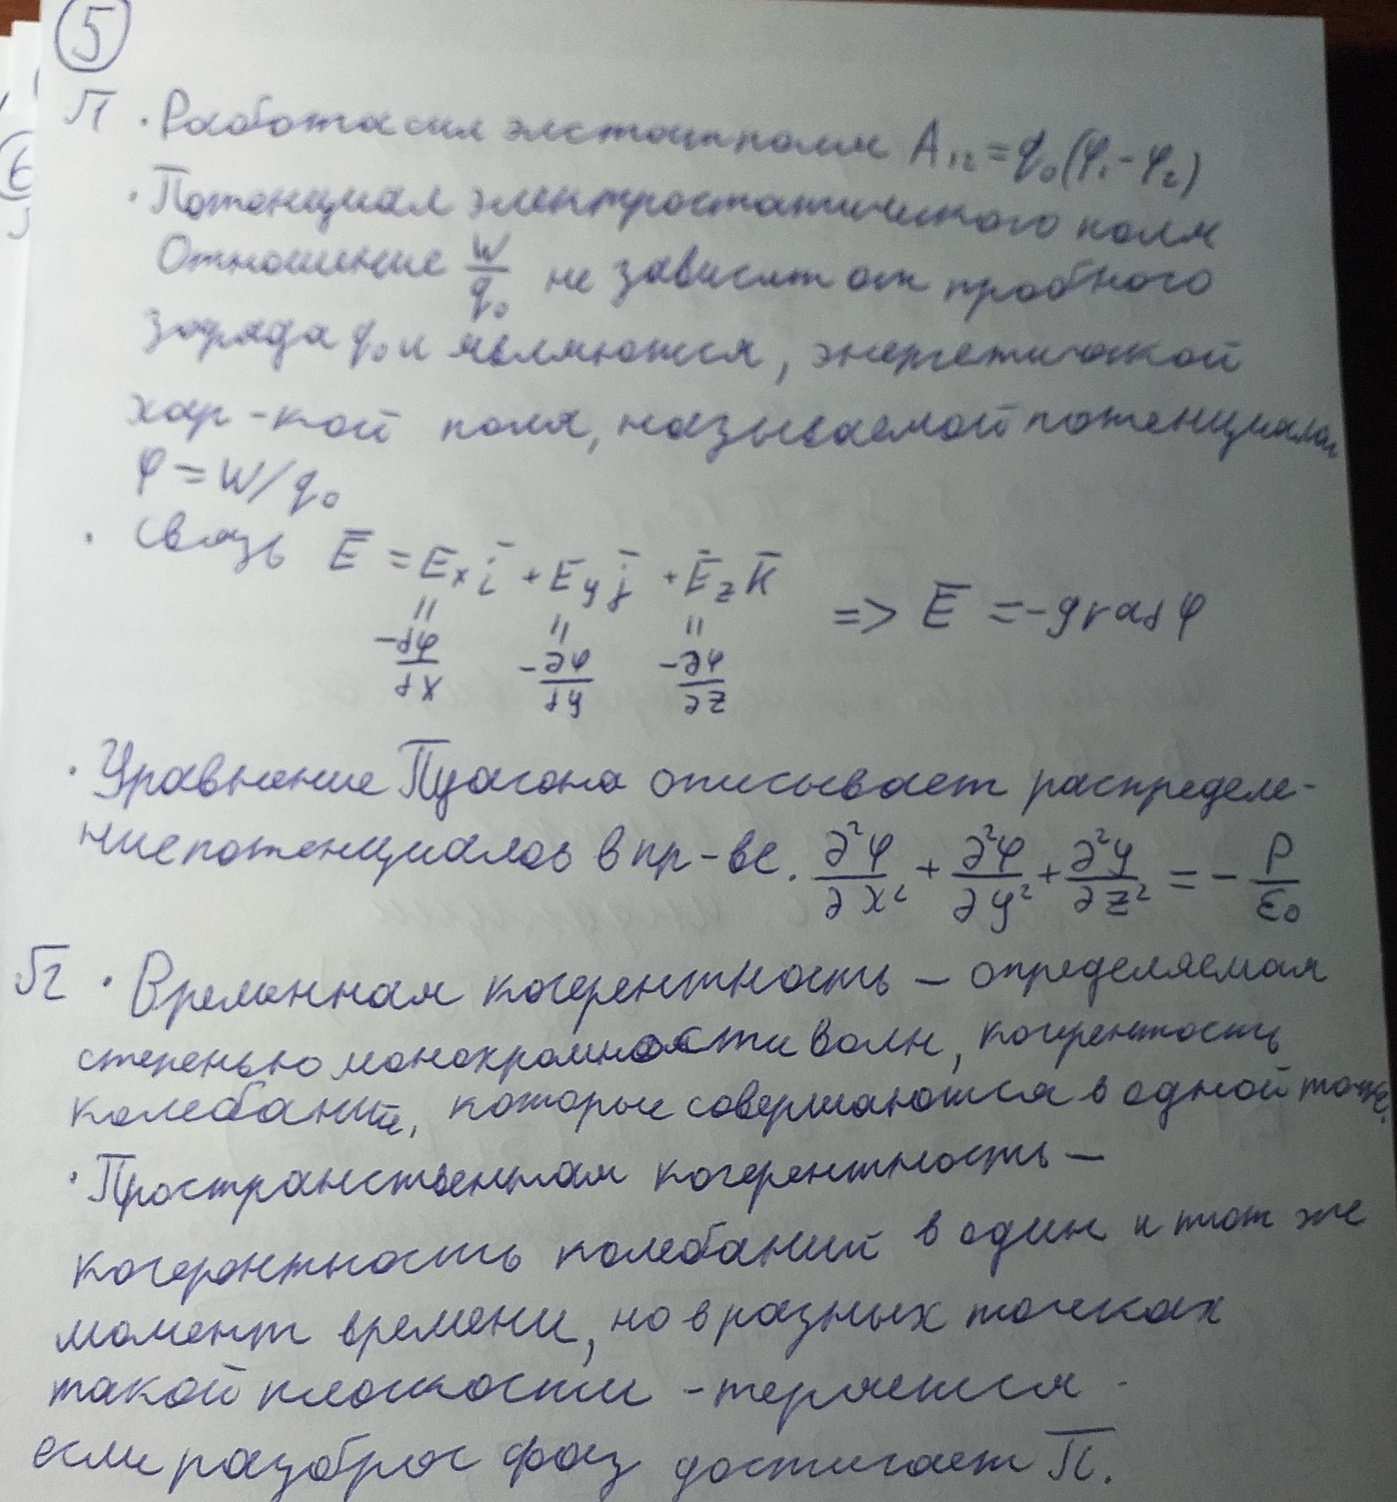 5
П · Работа сил элстат поля A₁₂ = q₀(φ₁ - φ₂)
· Потенциал электростатического поля
Отношение W/q₀ не зависят от пробного
заряда q₀ и являются, энергетической
хар-кой поля, называемой потенциалом
φ = W/q₀
· Связь E̅ = Eₓi̅ + Eᵧj̅ + E̅_z k̅ => E̅ = -grad φ
= = =
-∂φ/∂x -∂φ/∂y -∂φ/∂z
· Уравнение Пуасона описывает распределе-
ние потенциалов в пр-ве. ∂²φ/∂x² + ∂²φ/∂y² + ∂²φ/∂z² = - ρ/ε₀
П2 · Временная когерентность – определяемая
степенью монохромности волн, когерентность
колебаний, которые совершаются в одной точке.
· Пространственная когерентность –
когерентность колебаний в один и тот же
момент времени, но в разных точках
такой плоскости - теряется
если разброс фаз достигает π.
6